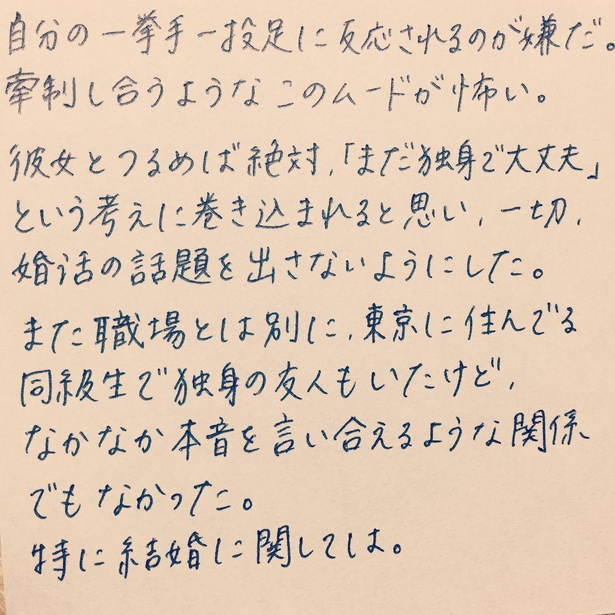 自分の一挙手一投足に反応されるのが嫌だ。
牽制し合うようなこのムードが怖い。
彼女とつるめば絶対、「まだ独身で大丈夫」
という考えに巻き込まれると思い、一切、
婚活の話題を出さないようにした。
また職場とは別に、東京に住んでる
同級生で独身の友人もいたけど、
なかなか本音を言い合えるような関係
でもなかった。
特に結婚に関しては。